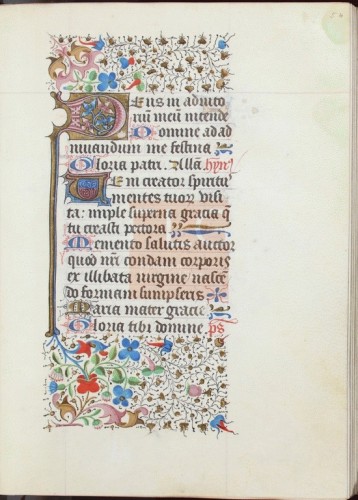 Deus in adiuto
riū meū intende
Domine ad ad
iuuandum me festina
Gloria patri. Alla. hyre
Veni creator spiritu
mentes tuor visi
ta: imple superna gracia q̄
tu creasti pectora
Memento salutis auctor
quod nr̄i condam corporis
ex illibata virgine nasce
do formam sumpseris
Maria mater gracie
Gloria tibi domine. ps